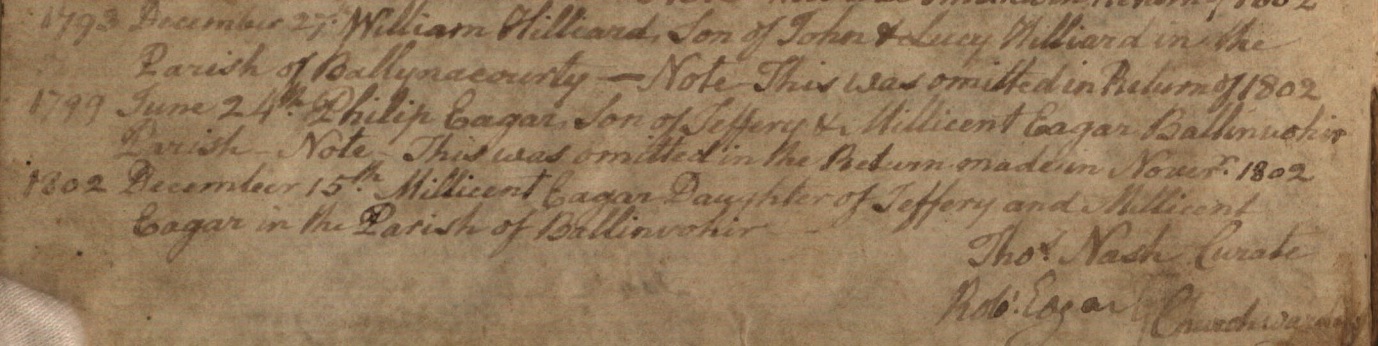 in Return of 1802
1793 December 27th William Hilliard, Son of John & Lucy Hilliard in the
Parish of Ballynacourty — Note This was omitted in Return of 1802
1799 June 24th Philip Eagar, Son of Jeffery & Millicent Eagar Ballinvohir
Parish – Note – This was omitted in the Return made in Nover. 1802
1802 December 15th Millicent Eagar Daughter of Jeffery and Millicent
Eagar in the Parish of Ballinvohir
Thos. Nash Curate
Robt. Eagar Churchwarden